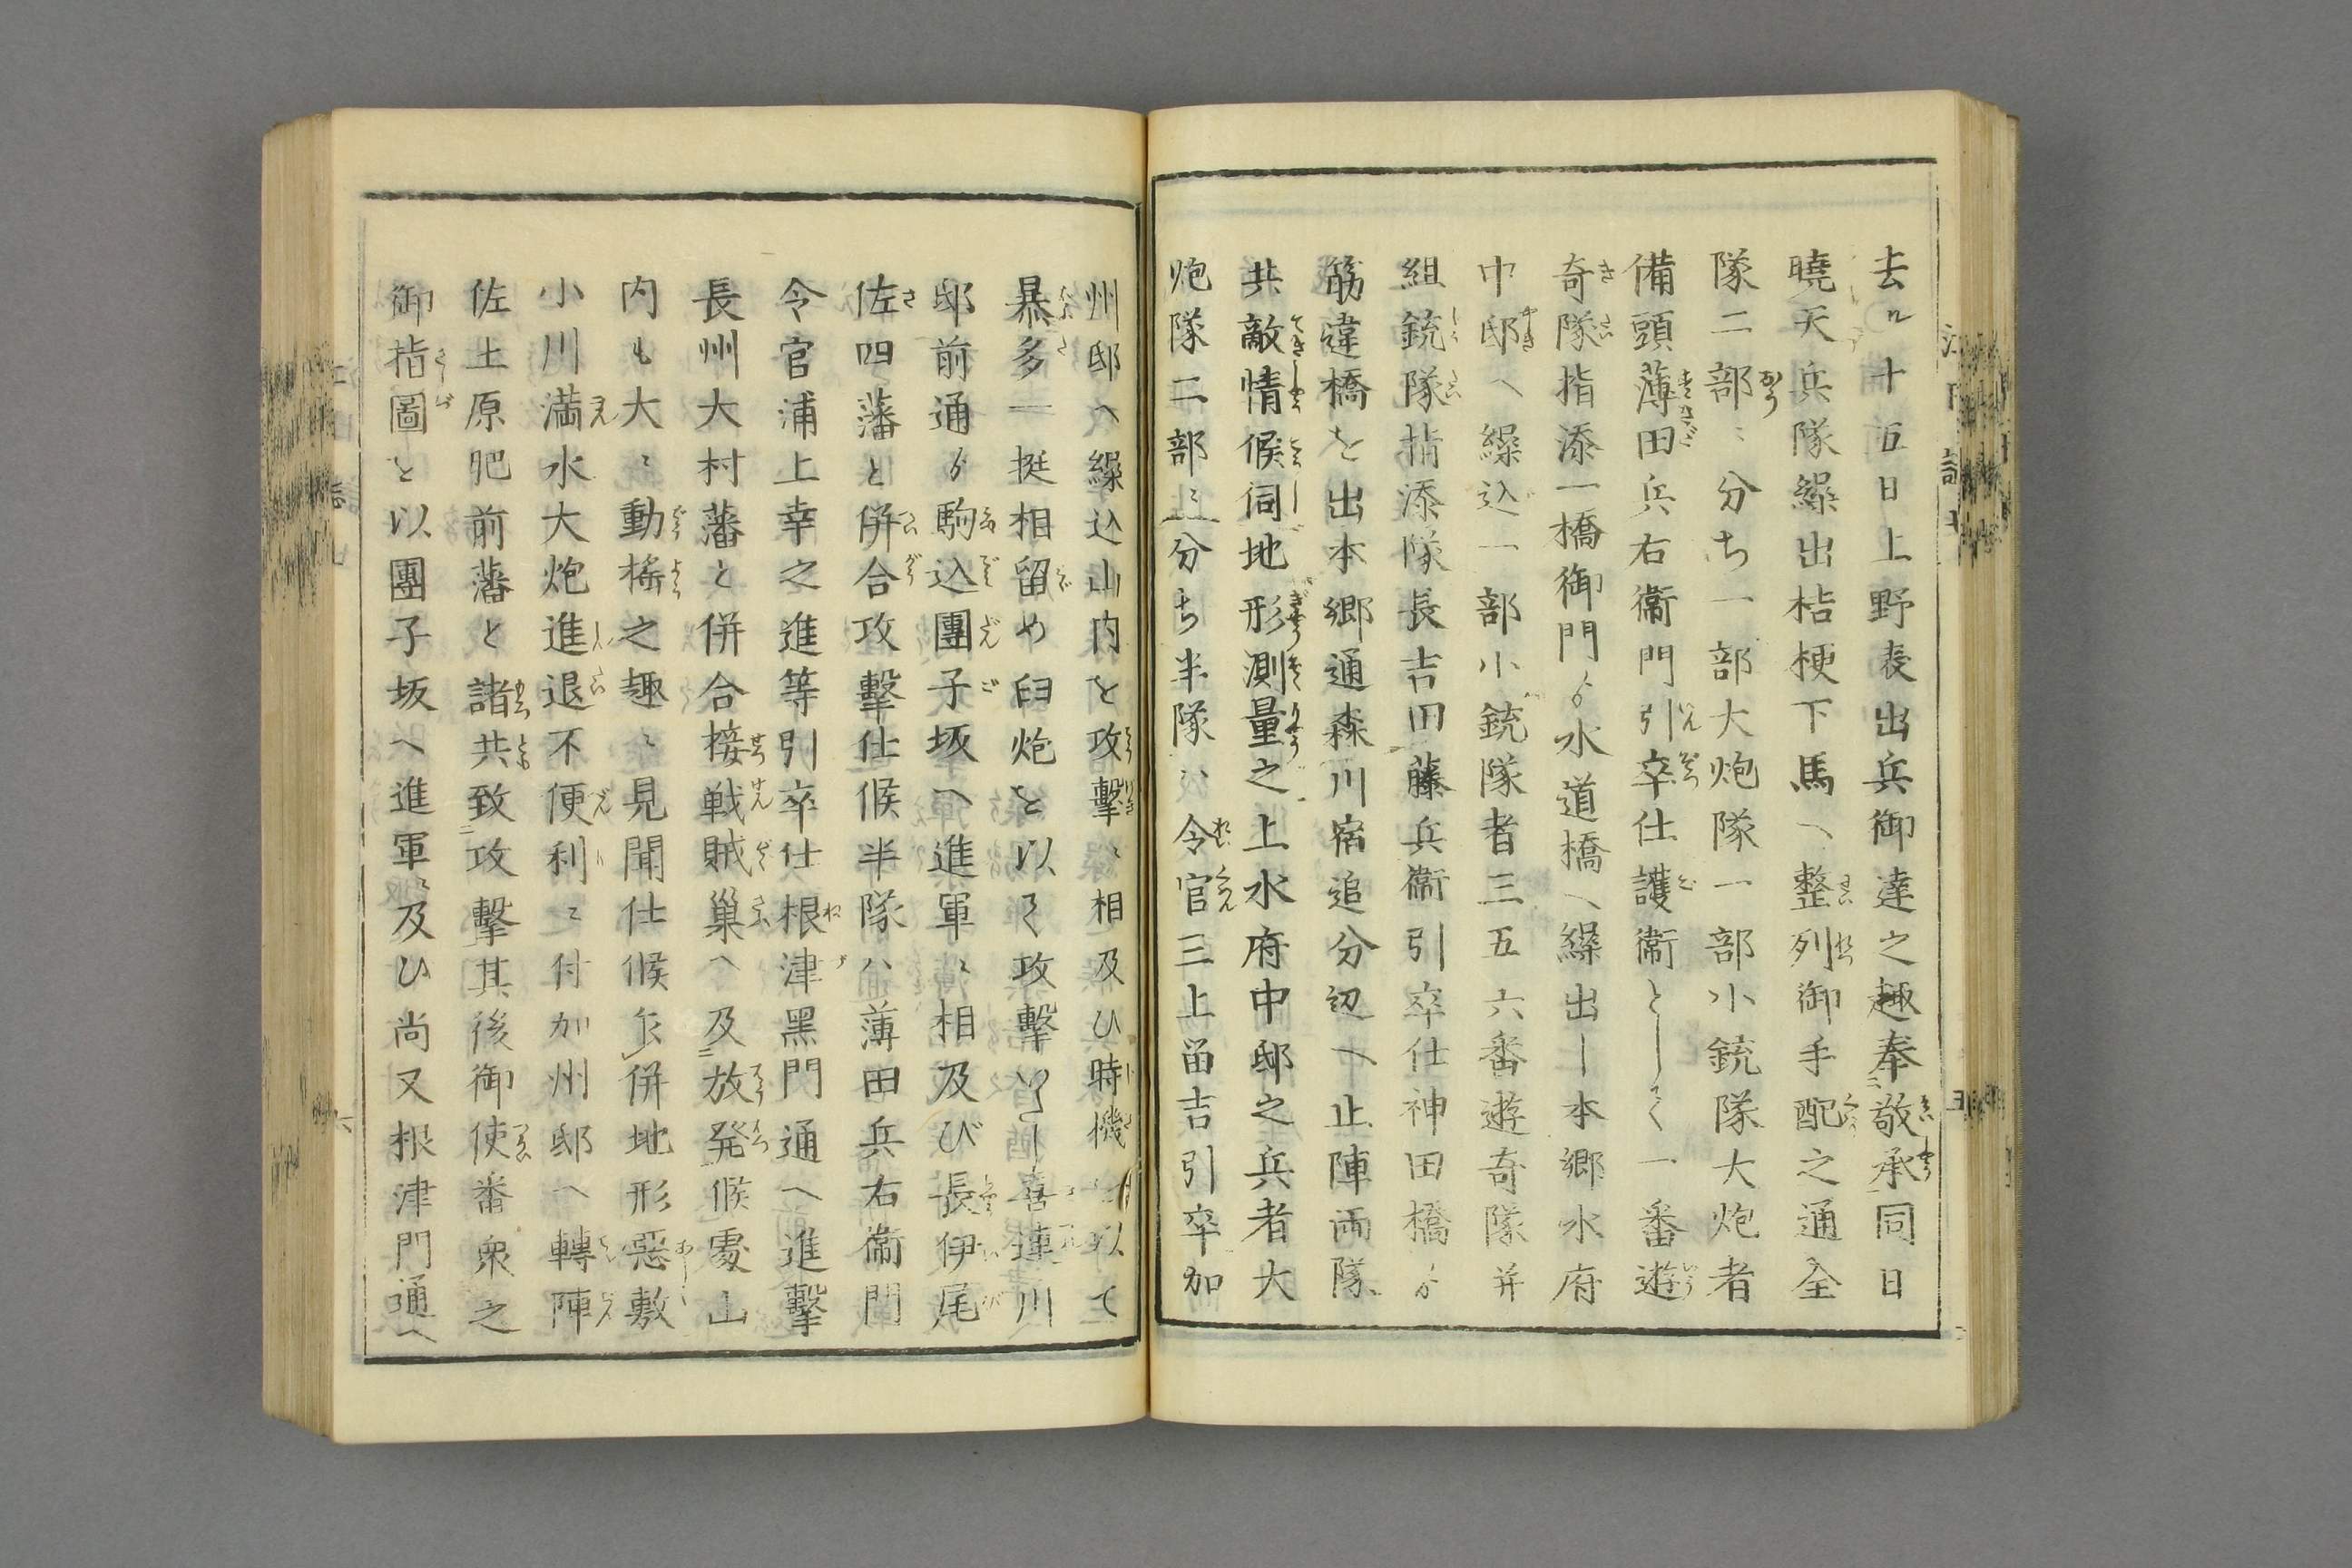 去ル十五日上野表出兵御達之趣奉敬承同日
曉天兵隊繰出桔梗下馬へ整列御手配之通全
隊二部ニ分ち一部大炮隊一部小銃隊大炮者
備頭薄田兵右衞門引卒仕護衞として一番遊
奇隊指添一橋御門ゟ水道橋へ繰出し本郷水府
中邸へ繰込一部小銃隊者三五六番遊奇隊并
組銃隊指添隊長吉田藤兵衞引卒仕神田橋ゟ
筋違橋を出本郷通森川宿追分辺へ止陣両隊
共敵情候伺地形測量之上水府中邸之兵者大
炮隊二部ニ分ち半隊ハ令官三上留吉引卒加
州邸へ繰込山内を攻擊ニ相及ひ時機を以て
暴多一挺相留め臼炮を以て攻擊いたし喜連川
邸前通ゟ駒込團子坂へ進軍ニ相及び長伊尾
佐四藩と併合攻擊仕候半隊ハ薄田兵右衞門
令官浦上幸之進等引卒仕根津黑門通へ進擊
長州大村藩と併合接戦賊巢へ及放発候處山
内も大ニ動搖之趣ニ見聞仕候乍併地形惡敷
小川満水大炮進退不便利ニ付加州邸へ轉陣
佐土原肥前藩と諸共致攻擊其後御使番衆之
御指圖を以團子坂へ進軍ニ及ひ尚又根津門通へ